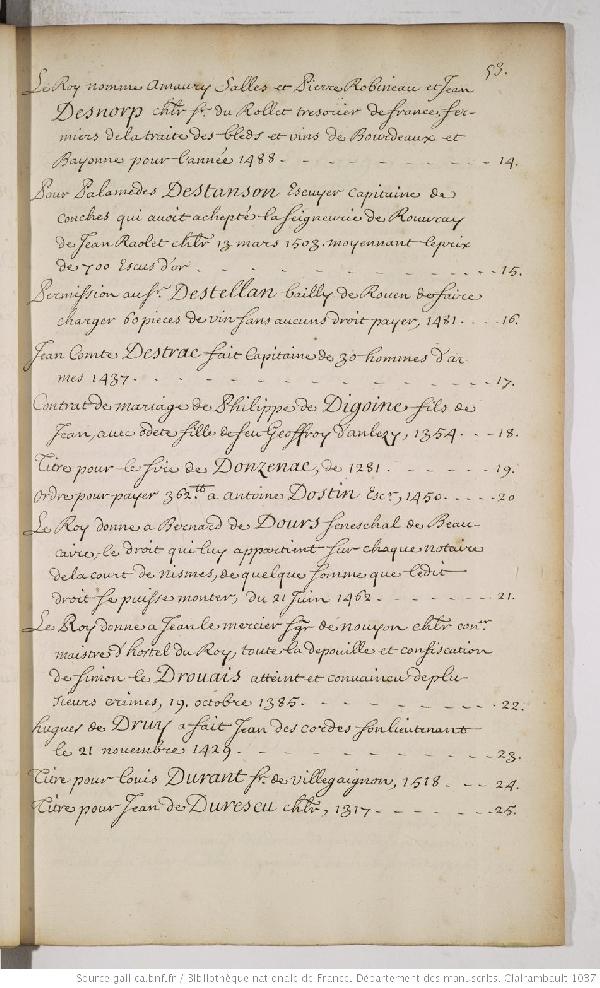 53.
Le Roy nomme Amaury Salles et Pierre Robineau et Jean
Desnorp chlr sr. du Rollet tresorier de france, fer-
miers de la traite des bleds et vins de Bourdeaux et
Bayonne pour l'année 1488 - - - - - - - - 14.
Pour Palamedes Destanson Escuyer capitaine de
conches qui avoit achepté la seigneurie de Rouvray
de Jean Raolet chlr 13 mars 1503. moyennant le prix
de 700 Escus d'or - - - - - - - - - - - 15.
Permission au sr. Destellan bailly de Rouen de faire
charger 60 pieces de vin sans aucuns droit payer, 1481 - - - - 16.
Jean Comte Destrac fait Capitaine de 30 hommes d'ar-
mes 1437 - - - - - - - - - - - - 17.
Contrat de mariage de Philippe de Digoine fils de
Jean, avec odete fille de feu Geoffroy d'anlezy, 1354 - - - 18.
Titre pour le sire de Donzenac, de 1281 - - - - - - 19.
Ordre pour payer 362.tt a antoine Dostin Escr, 1450 - - - - 20
Le Roy donne a Bernard de Dours seneschal de Beau-
caire, le droit qui luy appartient sur chaque notaire
de la court de nismes, de quelque somme que ledit
droit se puisse monter, du 21 Juin 1462 - - - - - - - 21.
Le Roy donne a Jean le mercier sgr de nouyon chlr conr.
maistre d'hostel du Roy, toute la depouille et confiscation
de simon le Drouais atteint et convaincu de plu-
sieurs crimes, 19. octobre 1385 - - - - - - - - 22.
hugues de Druy a fait Jean des cordes son lieutenant
le 21 novembre 1429 - - - - - - - - - - 23.
Titre pour louis Durant sr. de villegaignon, 1518 - - - 24.
Titre pour Jean de Dureseu chlr, 1317 - - - - - - - 25.
Source gallica.bnf.fr / Bibliothèque nationale de France. Département des manuscrits. Clairambault 1037